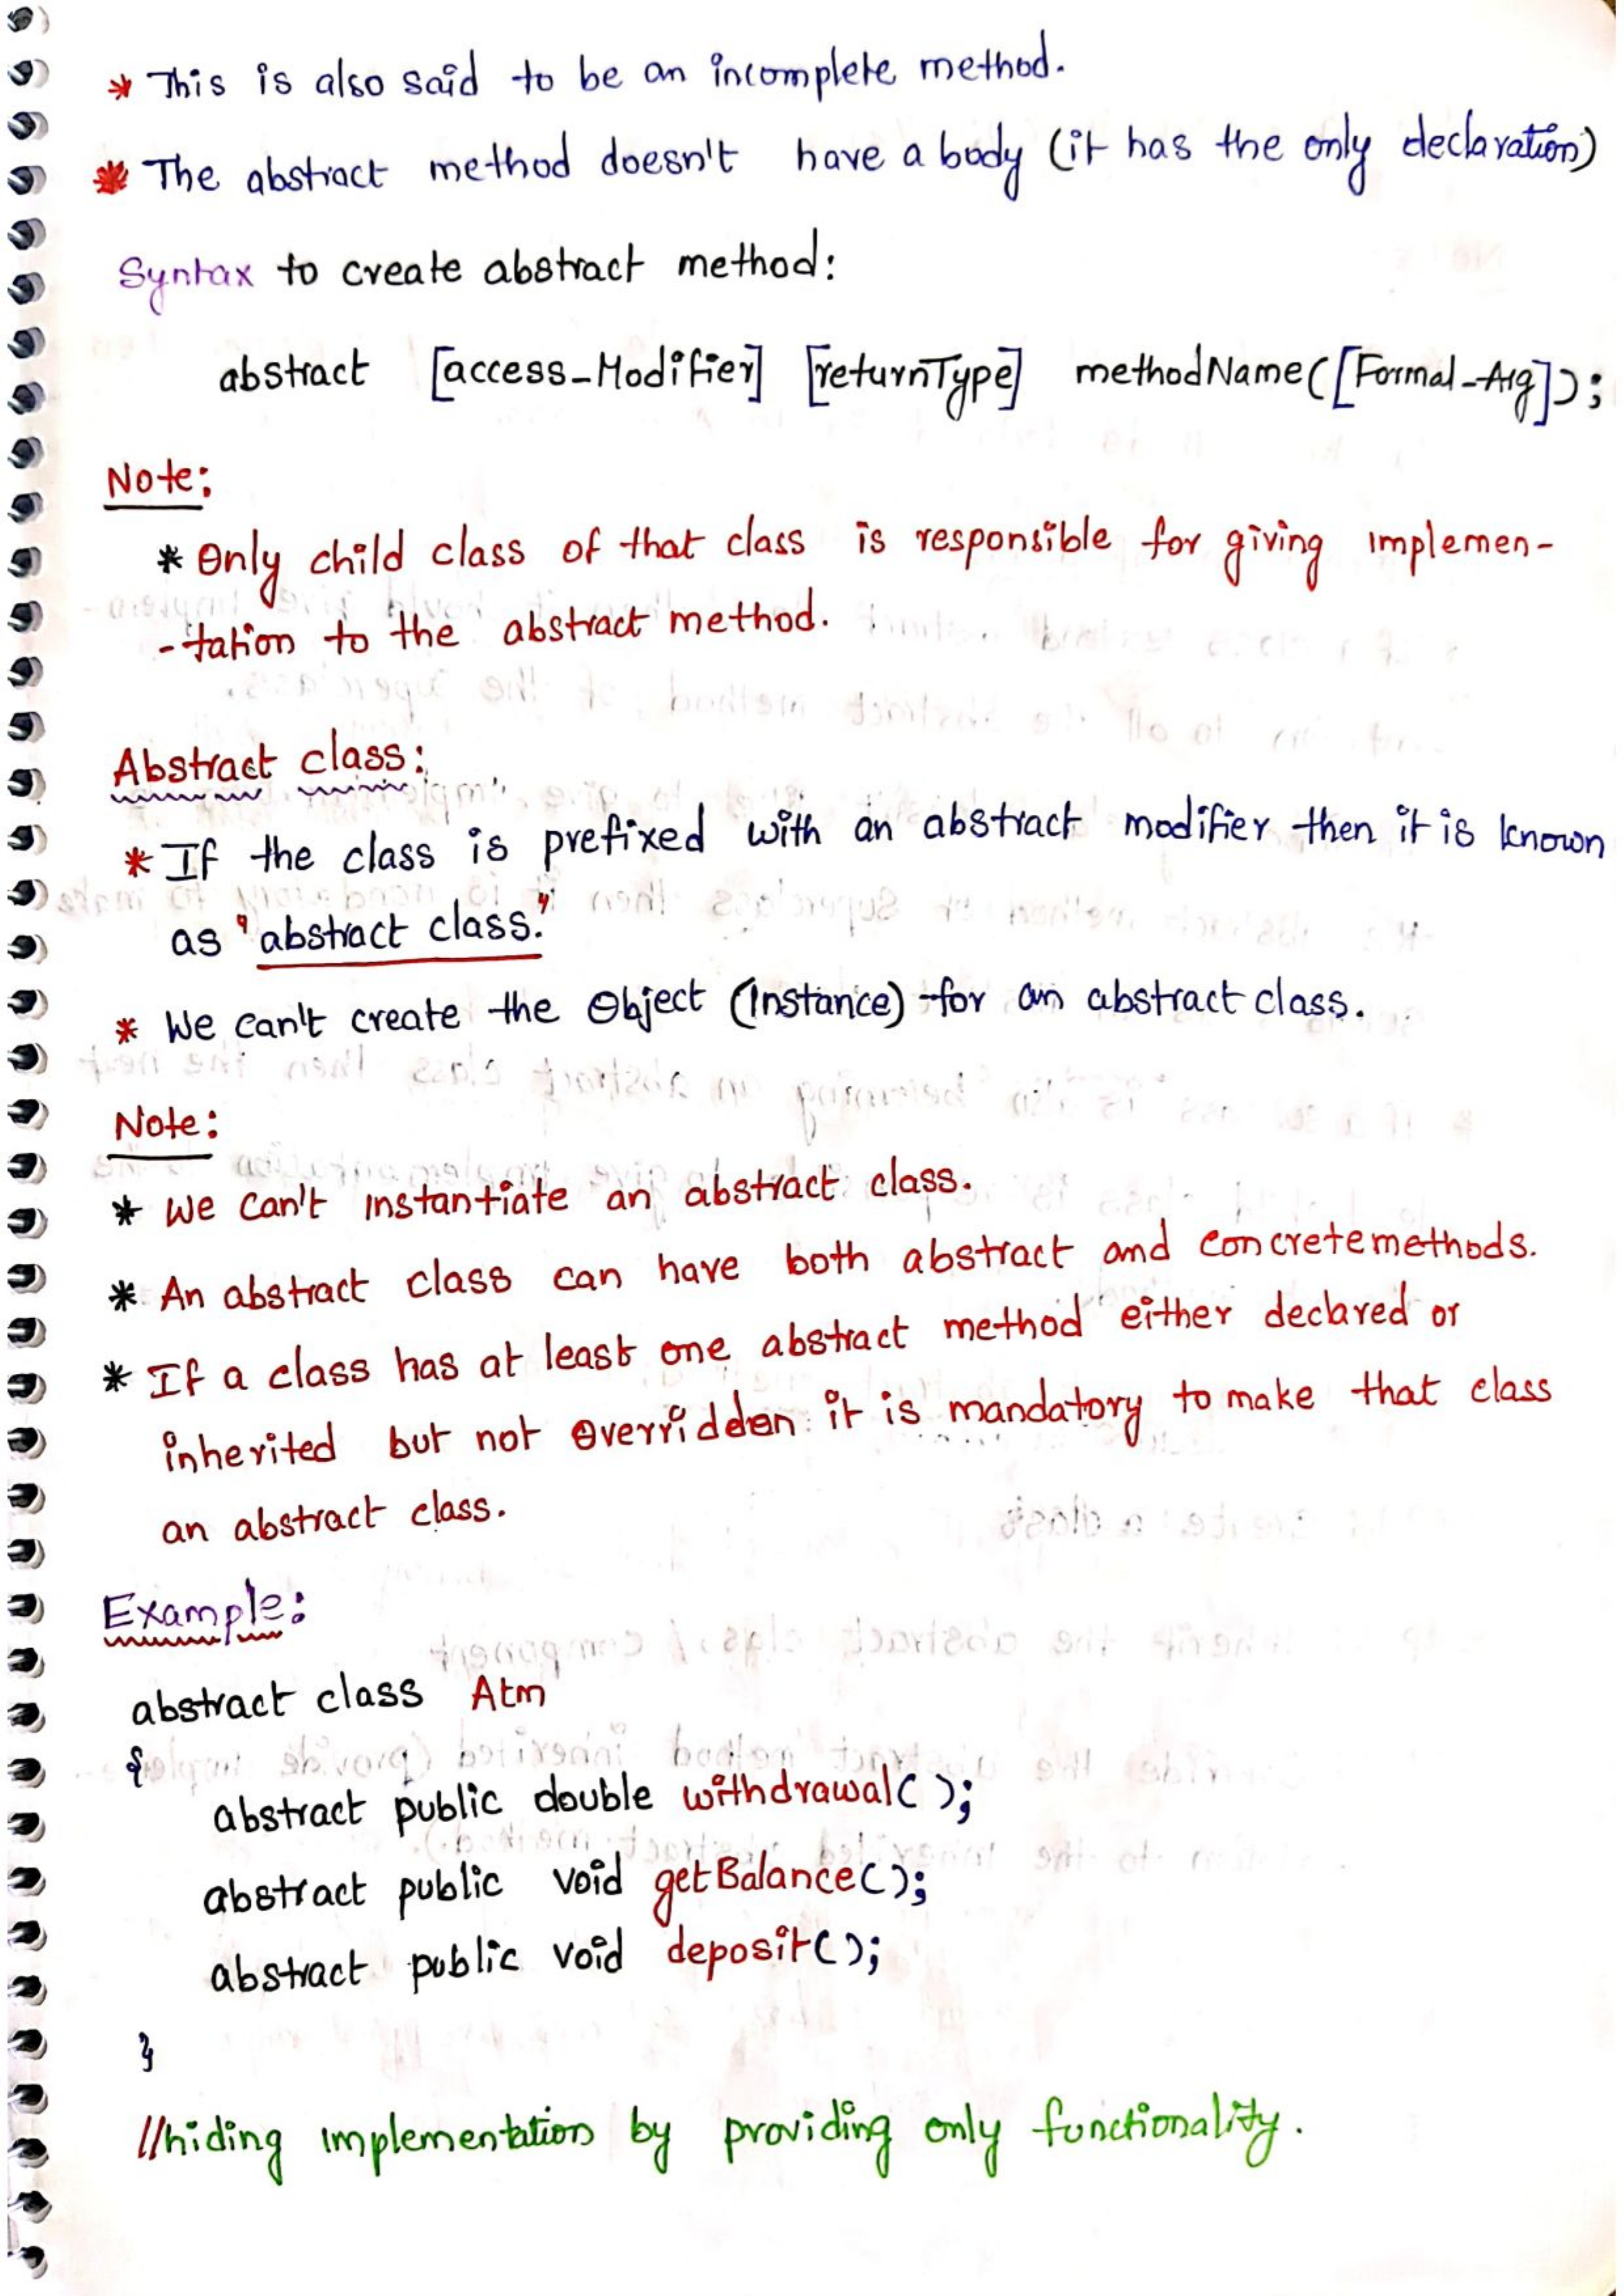 * This is also said to be an incomplete method.
* The abstract method doesn't have a body (it has the only declaration)
Syntax to create abstract method:
abstract [access_Modifier] [returnType] methodName([Formal_Arg]);
Note:
* Only child class of that class is responsible for giving implemen-
-tation to the abstract method.
Abstract class:
* If the class is prefixed with an abstract modifier then it is known
as "abstract class."
* We can't create the Object (Instance) for an abstract class.
Note:
* We can't instantiate an abstract class.
* An abstract class can have both abstract and concrete methods.
* If a class has at least one abstract method either declared or
inherited but not overridden it is mandatory to make that class
an abstract class.
Example:
abstract class Atm
{
abstract public double withdrawal( );
abstract public void getBalance( );
abstract public void deposit( );
}
//hiding implementation by providing only functionality.